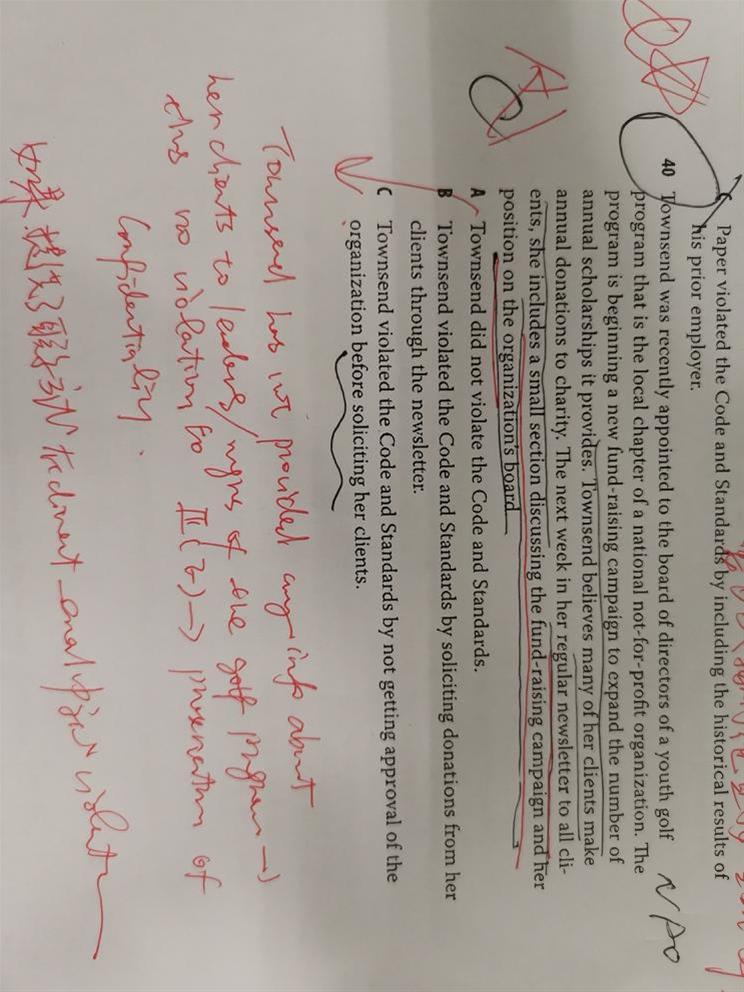 Paper violated the Code and Standards by including the historical results of
his prior employer.
40 Townsend was recently appointed to the board of directors of a youth golf
program that is the local chapter of a national not-for-profit organization. The
program is beginning a new fund-raising campaign to expand the number of
annual scholarships it provides. Townsend believes many of her clients make
annual donations to charity. The next week in her regular newsletter to all cli-
ents, she includes a small section discussing the fund-raising campaign and her
position on the organization's board.
A Townsend did not violate the Code and Standards.
B Townsend violated the Code and Standards by soliciting donations from her
clients through the newsletter.
C Townsend violated the Code and Standards by not getting approval of the
organization before soliciting her clients.
NPO
Townsend has not provided any info about
her clients to leaders/mgrs of the golf program →
thus no violation to III( ) → preservation of
Confidentiality.
如果 提供了 client email violate